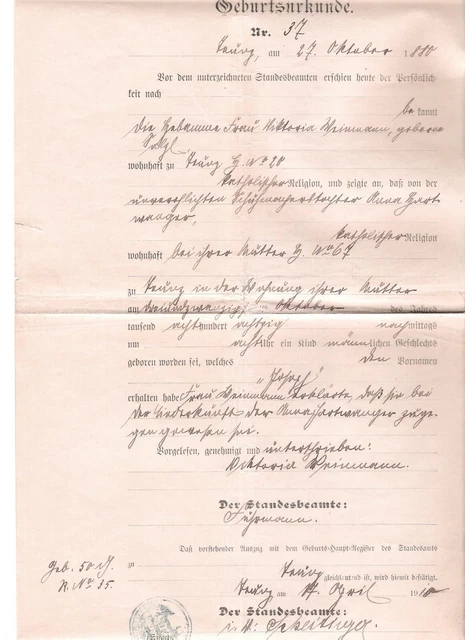 Geburtsurkunde.
Nr. 37
Teung, am 27. Oktober 1880
Vor dem unterzeichneten Standesbeamten erschien heute der Persönlich-
keit nach
bekannt
die Hebamme Frau Viktoria Weinmann, geborene
wohnhaft zu Teung H. No 20
katholischer Religion, und zeigte an, daß von der
unverehlichten Schuhmacherstochter Anna Hart
wanger,
katholischer Religion
wohnhaft bei ihrer Mutter H. No 67
zu Teung in der Wohnung ihrer Mutter
am dreiundzwanzigsten Oktober des Jahres
tausend achthundert achtzig nachmittags
um acht Uhr ein Kind männlichen Geschlechts
geboren worden sei, welches den Vornamen
„Joseph“
erhalten habe. Frau Weinmann erklärte, daß sie bei
der Niederkunft der Anna Hartwanger zuge-
gen gewesen sei.
Vorgelesen, genehmigt und unterschrieben:
Viktoria Weinmann.
Der Standesbeamte:
Fuhrmann.
Daß vorstehender Auszug mit dem Geburts-Haupt-Register des Standesamts
zu Teung
gleichlautend ist, wird hiermit bestätigt.
Geb. 50 Pf.
Teung am April 1910
Der Standesbeamte: